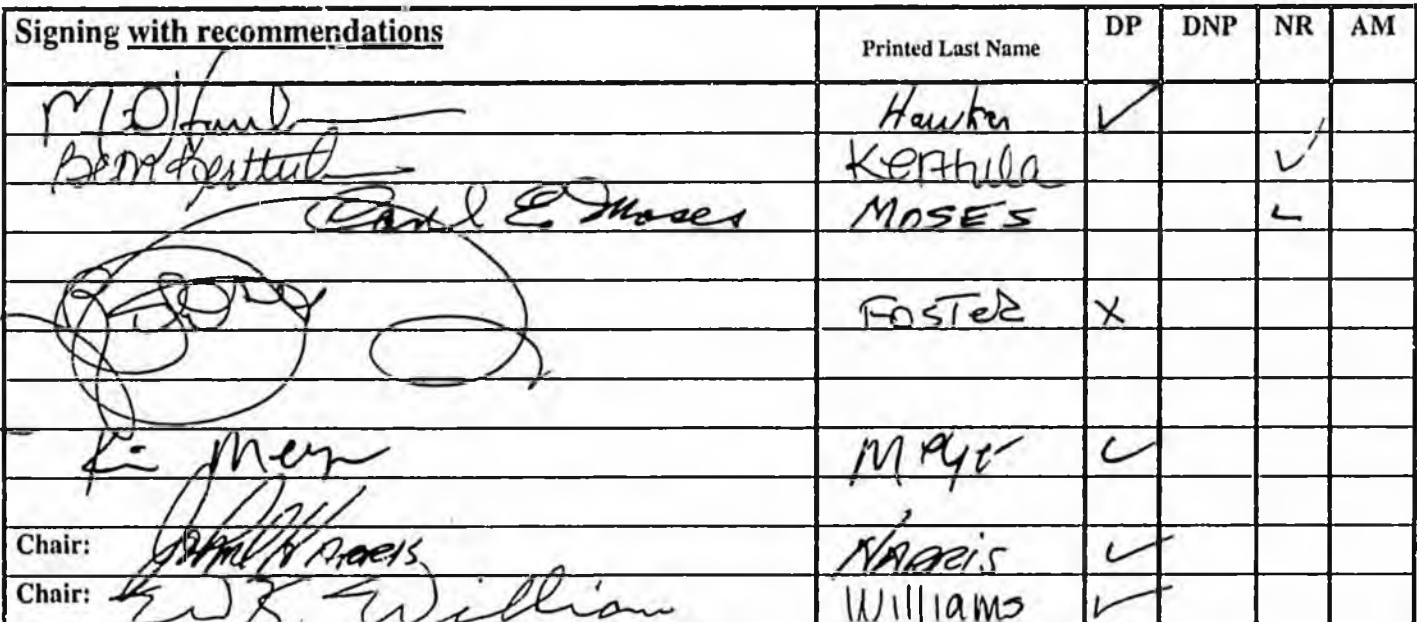 Signing with recommendations Printed Last Name DP DNP NR AM
Hawker ✓
Kerttula ✓
Carl E. Moses MOSES ✓
FOSTER X
Meyer ✓
Chair: HARRIS ✓
Chair: Williams ✓